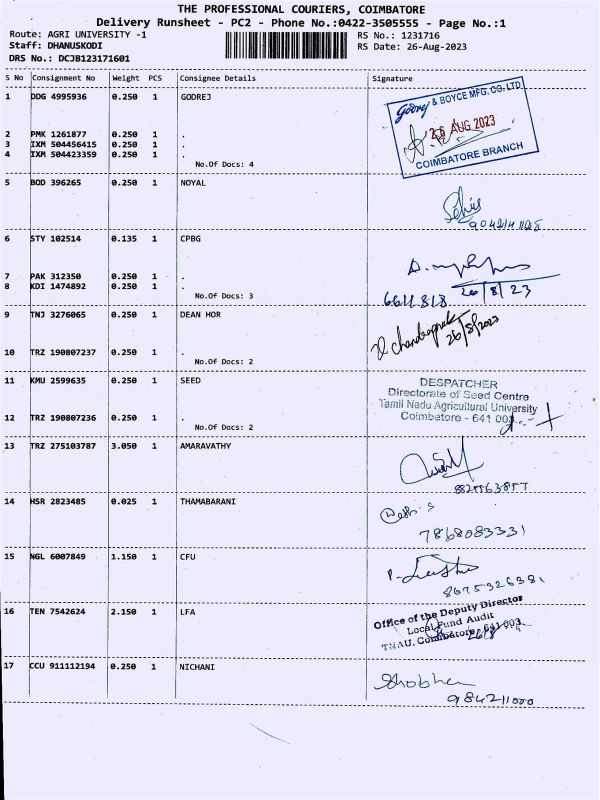 THE PROFESSIONAL COURIERS, COIMBATORE
Delivery Runsheet - PC2 - Phone No.:0422-3505555 - Page No.:1
Route: AGRI UNIVERSITY -1
RS No.: 1231716
Staff: DHANUSKODI
RS Date: 26-Aug-2023
DRS No.: DCJB123171601
S No Consignment No Weight PCS Consignee Details Signature
1 DDG 4995936 0.250 1 GODREJ
Godrej & BOYCE MFG. CO. LTD
26 AUG 2023
COIMBATORE BRANCH
2 PMK 1261877 0.250 1 .
3 IXM 504456415 0.250 1 .
4 IXM 504423359 0.250 1 .
No.Of Docs: 4
5 BOD 396265 0.250 1 NOYAL
6 STY 102514 0.135 1 CPBG
7 PAK 312350 0.250 1 .
8 KDI 1474892 0.250 1 .
No.Of Docs: 3
26/8/23
9 TNJ 3276065 0.250 1 DEAN HOR
26/8/2023
10 TRZ 190807237 0.250 1 .
No.Of Docs: 2
11 KMU 2599635 0.250 1 SEED
DESPATCHER
Directorate of Seed Centre
Tamil Nadu Agricultural University
Coimbatore - 641 003.
12 TRZ 190807236 0.250 1 .
No.Of Docs: 2
13 TRZ 275103787 3.050 1 AMARAVATHY
14 HSR 2823485 0.025 1 THAMABARANI
7868083331
15 NGL 6007849 1.150 1 CFU
8675326381
16 TEN 7542624 2.150 1 LFA
Office of the Deputy Director
Local Fund Audit
TNAU, Coimbatore, 641 003.
17 CCU 911112194 0.250 1 NICHANI
Shobhen
984211000